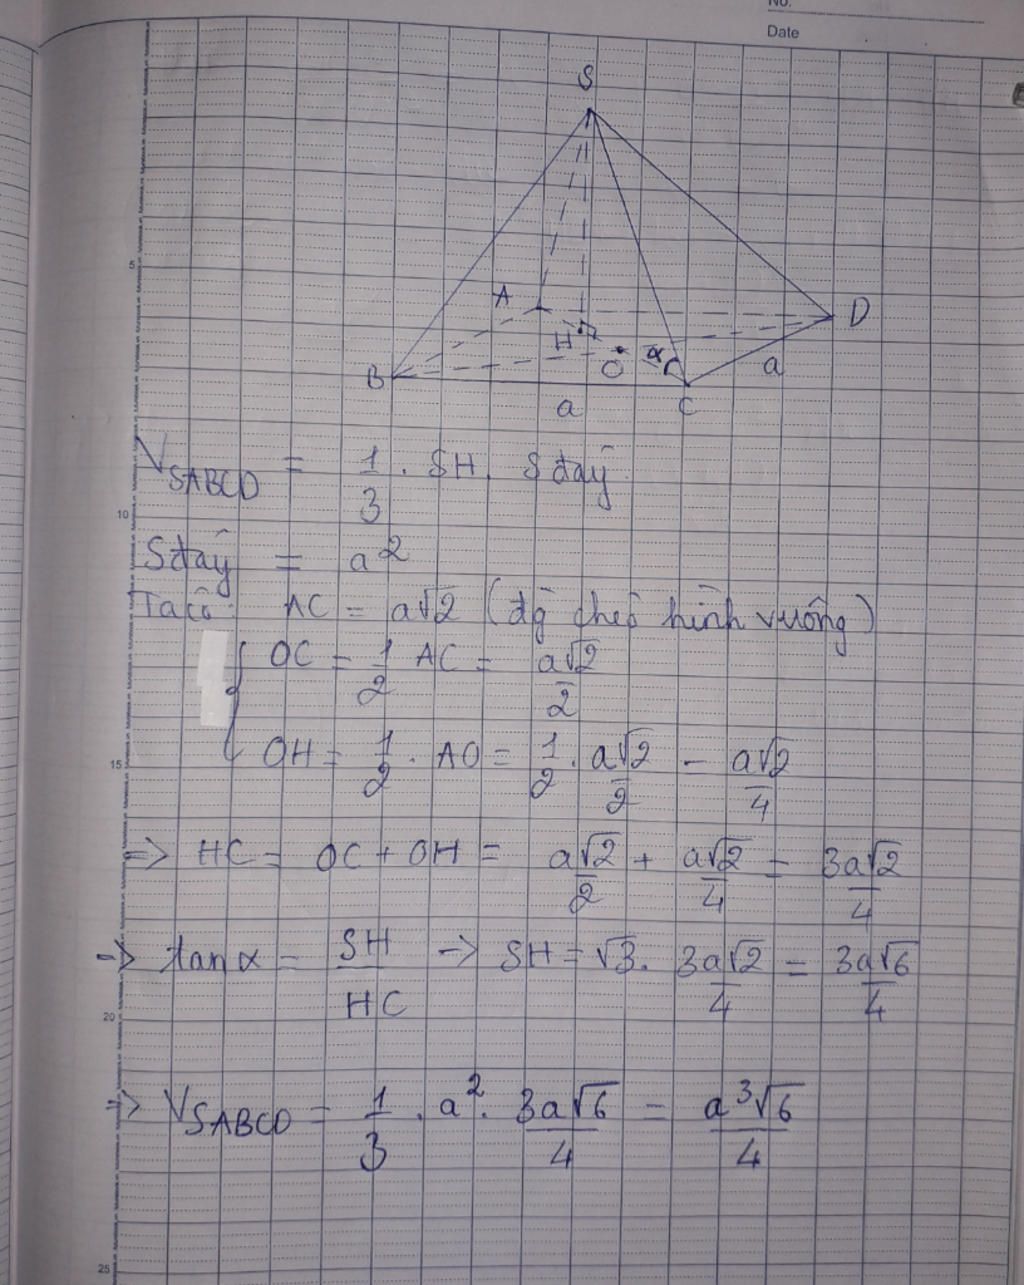 No.
Date
S
A
D
H
O
α
B
a
C
a
5
V_SABCD = 1/3 . SH . S đáy
10
S đáy = a^2
Ta có: AC = a√2 (đg chéo hình vuông)
{ OC = 1/2 AC = a√2/2
15
OH = 1/2 . AO = 1/2 . a√2/2 = a√2/4
=> HC = OC + OH = a√2/2 + a√2/4 = 3a√2/4
=> tan α = SH/HC -> SH = √3 . 3a√2/4 = 3a√6/4
20
=> V_SABCD = 1/3 . a^2 . 3a√6/4 = a^3√6/4
25